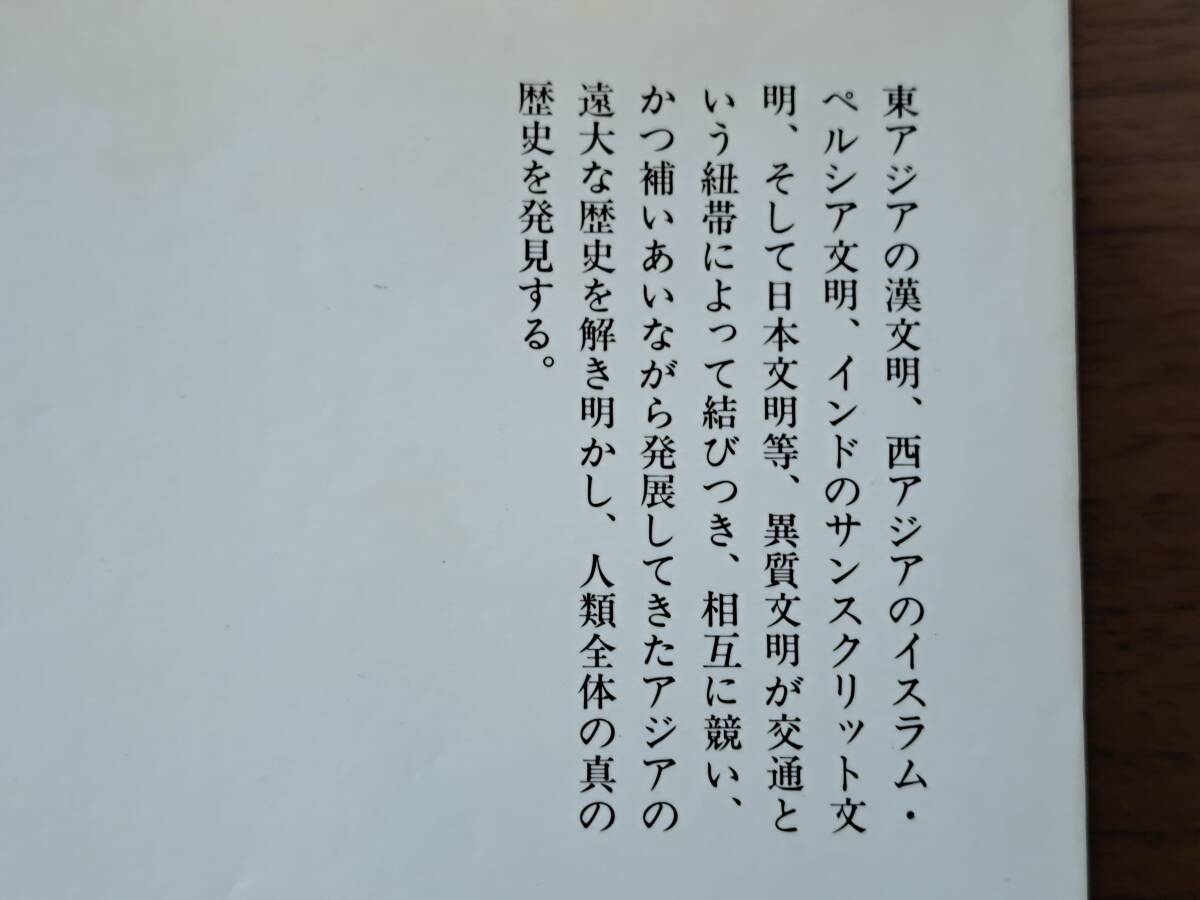 東アジアの漢文明、西アジアのイスラム・
ペルシア文明、インドのサンスクリット文
明、そして日本文明等、異質文明が交通と
いう紐帯によって結びつき、相互に競い、
かつ補いあいながら発展してきたアジアの
遠大な歴史を解き明かし、人類全体の真の
歴史を発見する。